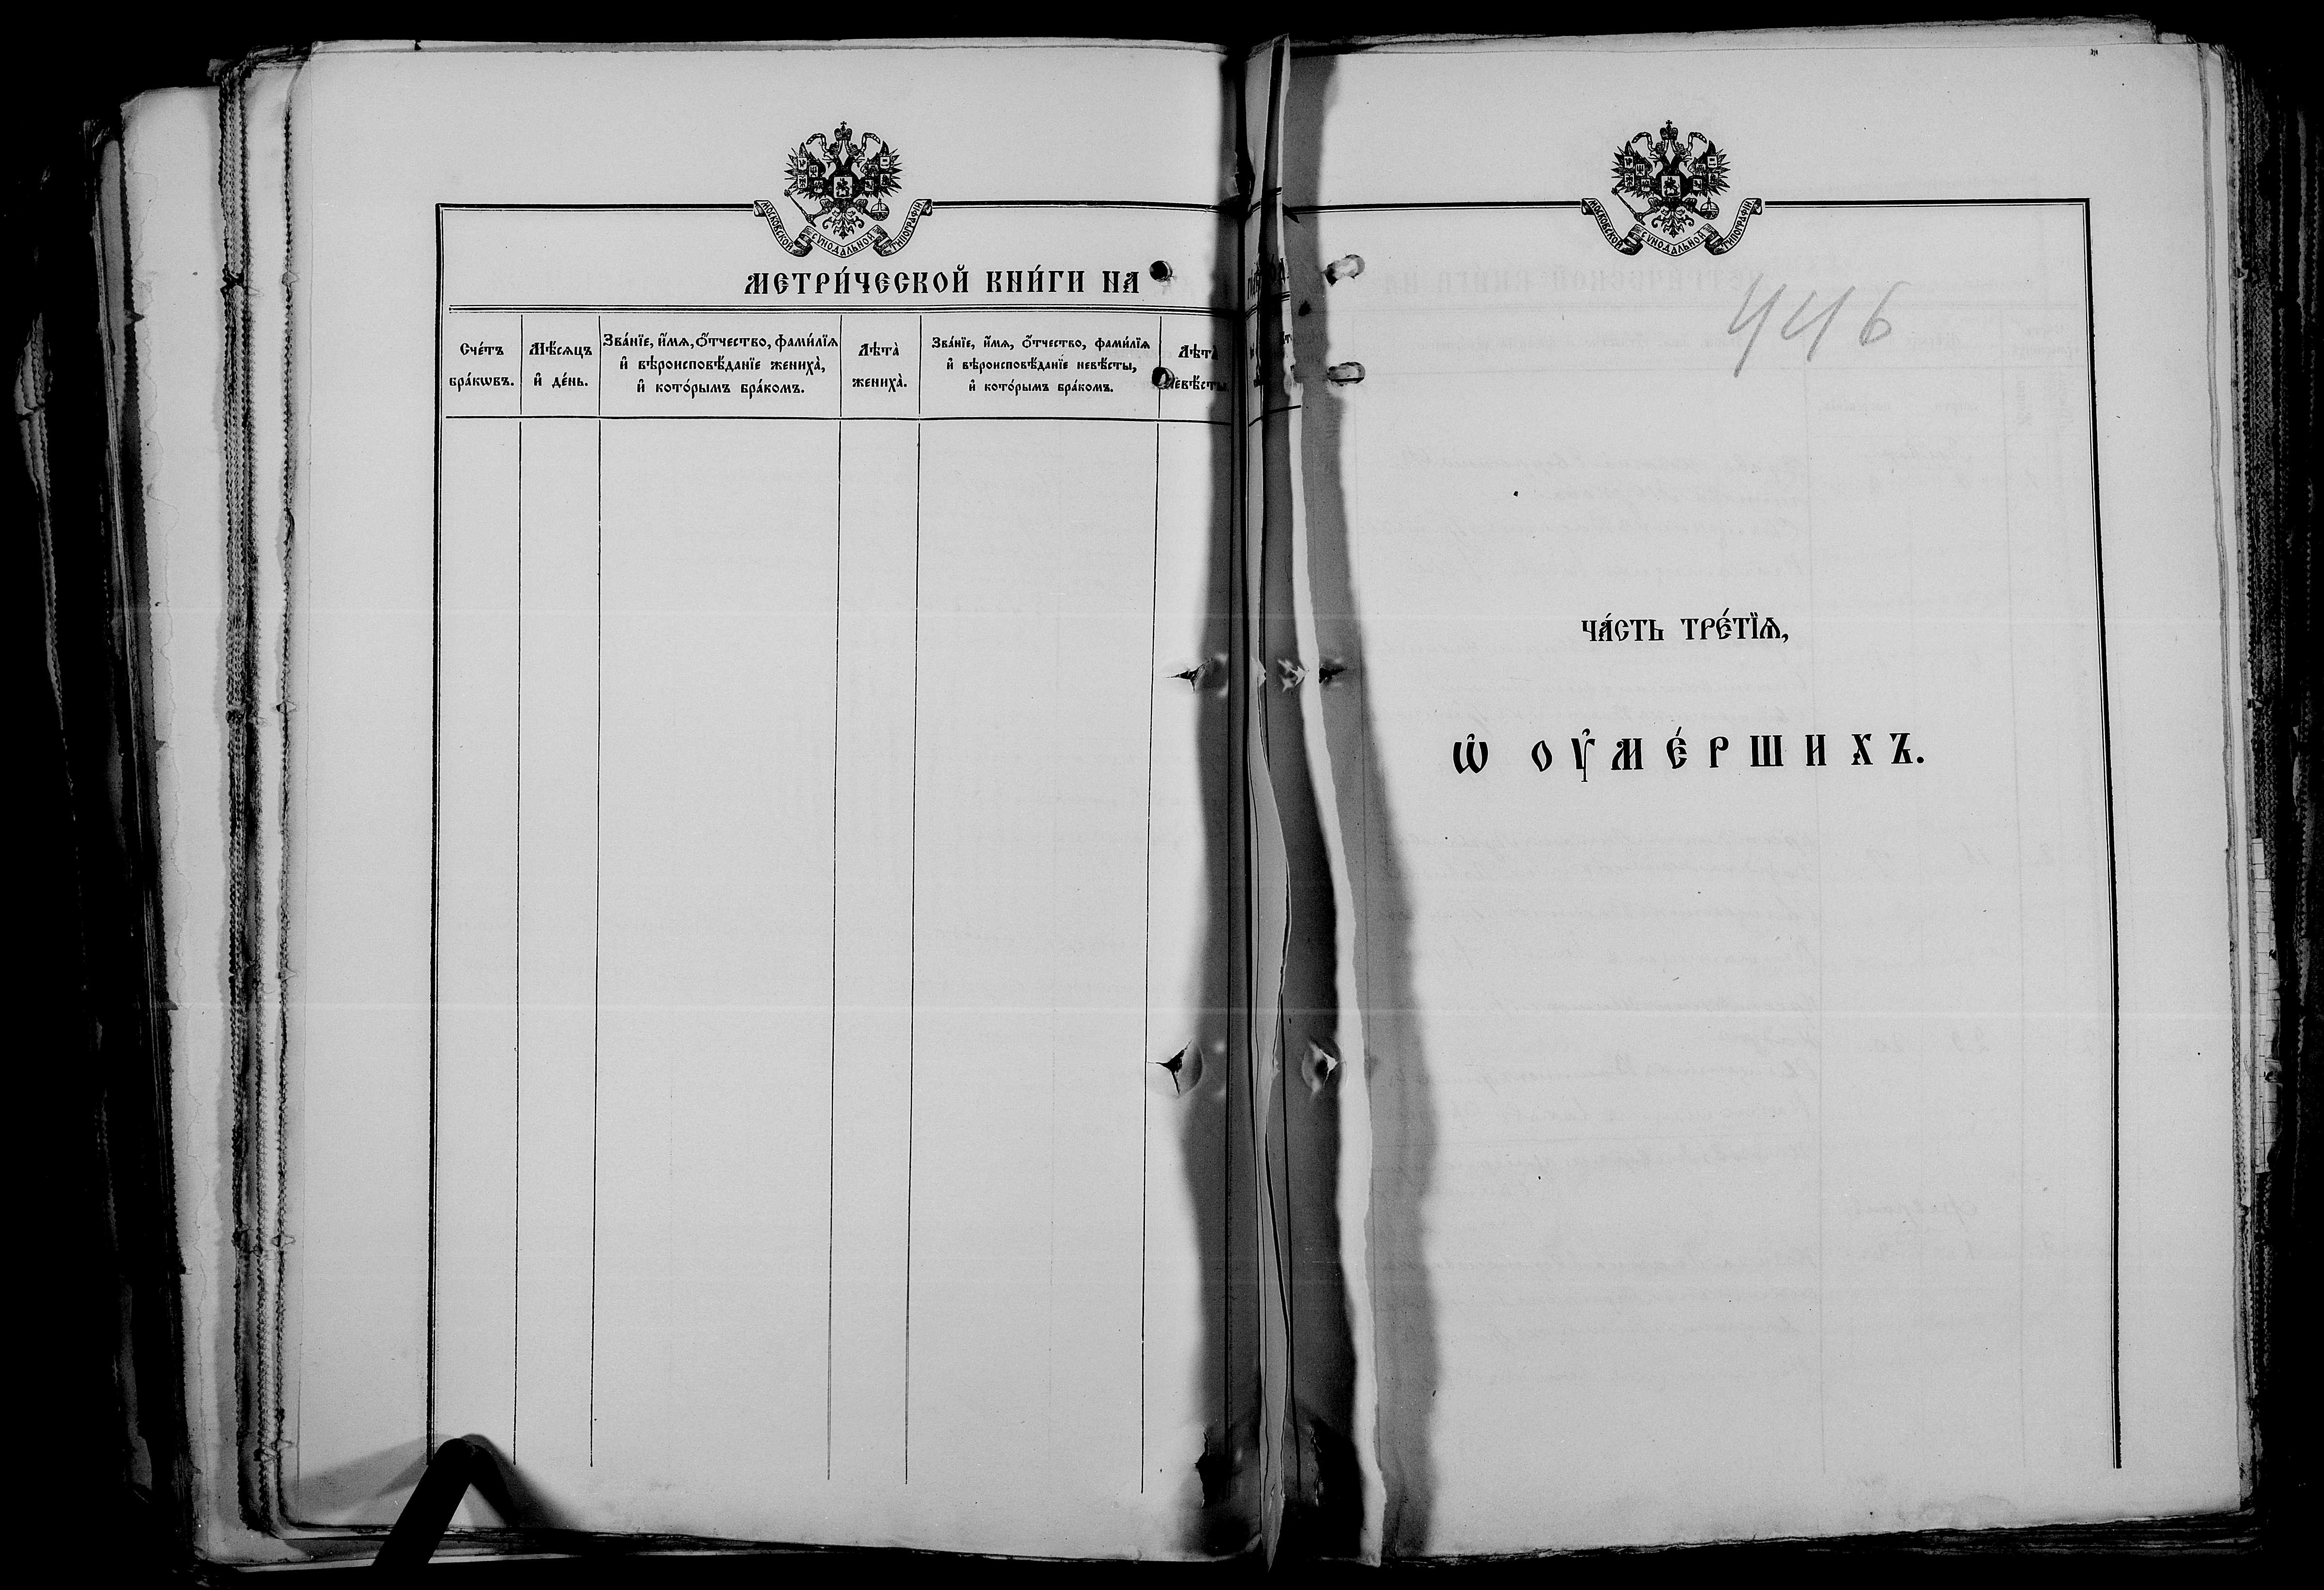 МОСКОВСКОЙ СѴНОДАЛЬНОЙ ТИПОГРАФІИ
МЕТРИ́ЧЕСКОЙ КНИ́ГИ НА
Сче́тъ
бра́кѡвъ.
Мѣ́сяцъ
и҆ де́нь.
Зва́нїе, и҆́мѧ, ѻ҆́тчество, фами́лїѧ
и҆ вѣроисповѣ́данїе жениха̀,
и҆ кото́рымъ бра́комъ.
Лѣта̀
жениха̀.
Зва́нїе, и҆́мѧ, ѻ҆́тчество, фами́лїѧ
и҆ вѣроисповѣ́данїе невѣ́сты,
и҆ кото́рымъ бра́комъ.
Лѣта̀
невѣ́сты.
МОСКОВСКОЙ СѴНОДАЛЬНОЙ ТИПОГРАФІИ
446
ЧА́СТЬ ТРЕ́ТЇѦ,
Ѡ҆ ОУ҆МЕ́РШИХЪ.